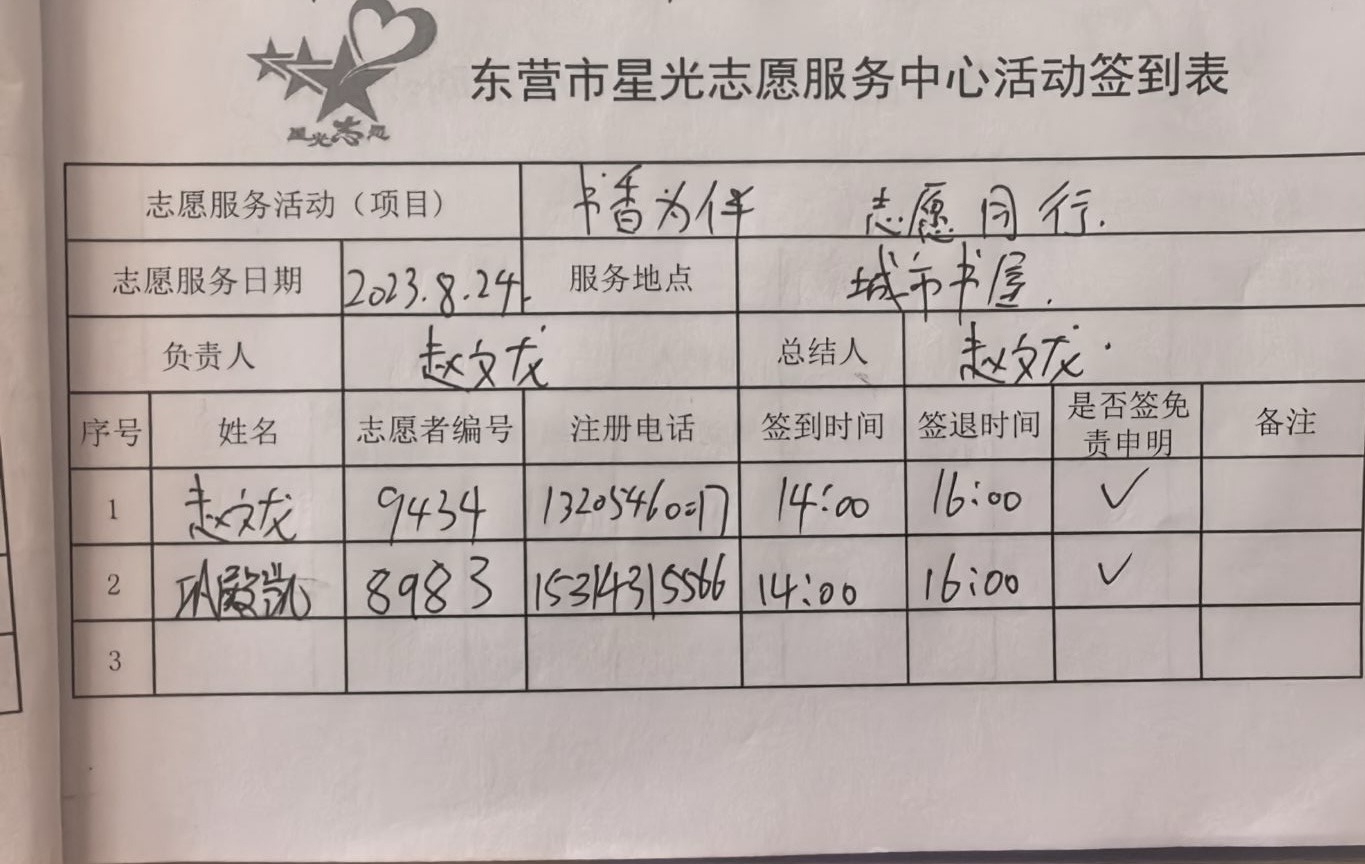 星光志愿
东营市星光志愿服务中心活动签到表
志愿服务活动（项目） 书香为伴 志愿同行.
志愿服务日期 2023.8.24. 服务地点 城市书屋.
负责人 赵文龙 总结人 赵文龙.
序号 姓名 志愿者编号 注册电话 签到时间 签退时间 是否签免责申明 备注
1 赵文龙 9434 14:00 16:00 ✓
2 8983 15314315566 14:00 16:00 ✓
3